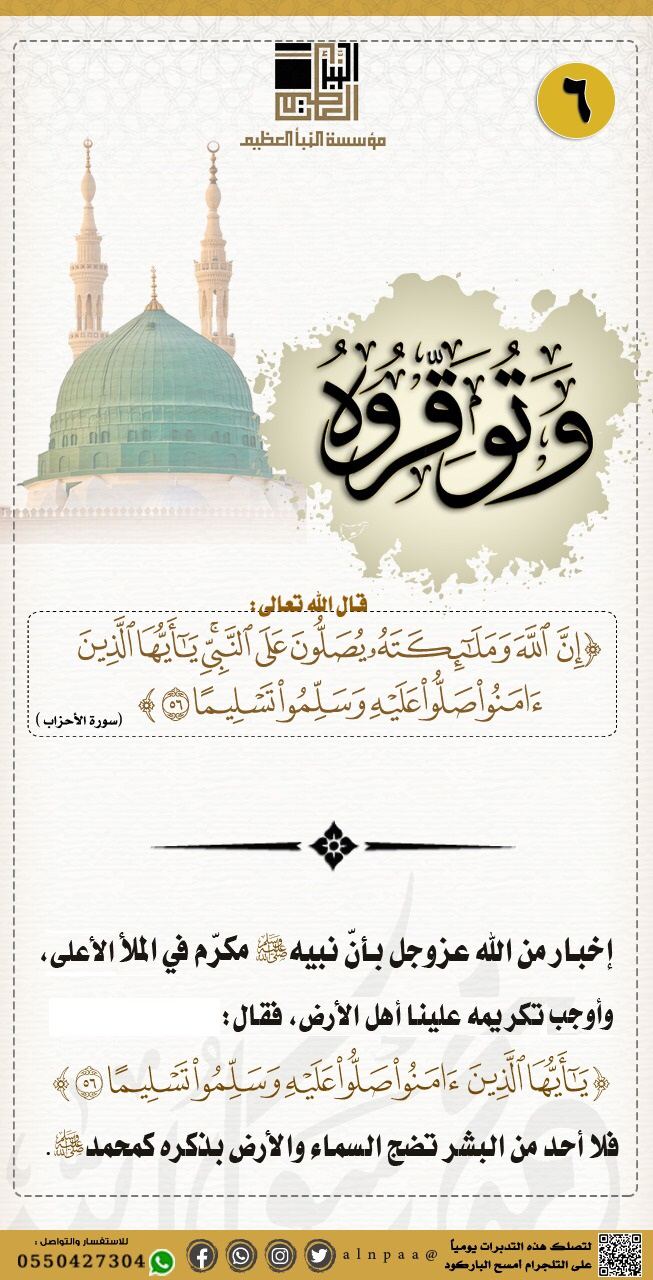 النبأ العظيم
مؤسسة النبأ العظيم
٦
وَتُوَقِّرُوهُ
قال الله تعالى:
﴿إِنَّ ٱللَّهَ وَمَلَٰٓئِكَتَهُۥ يُصَلُّونَ عَلَى ٱلنَّبِيِّۚ يَٰٓأَيُّهَا ٱلَّذِينَ
ءَامَنُواْ صَلُّواْ عَلَيْهِ وَسَلِّمُواْ تَسْلِيمًا ٥٦﴾ (سورة الأحزاب)
إخبار من الله عزوجل بأنّ نبيه ﷺ مكرّم في الملأ الأعلى،
وأوجب تكريمه علينا أهل الأرض، فقال:
﴿يَٰٓأَيُّهَا ٱلَّذِينَ ءَامَنُواْ صَلُّواْ عَلَيْهِ وَسَلِّمُواْ تَسْلِيمًا ٥٦﴾
فلا أحد من البشر تضج السماء والأرض بذكره كمحمد ﷺ.
لتصلك هذه التدبرات يومياً
على التلجرام امسح الباركود
@alnpaa
للاستفسار والتواصل:
0550427304